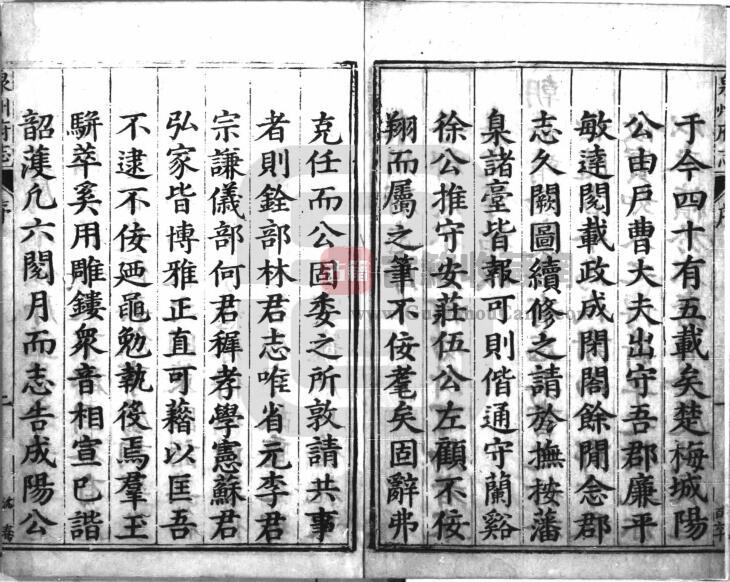 于今四十有五載矣楚梅城陽
公由戶曹大夫出守吾郡廉平
敏達閱載政成閉閤餘閒念郡
志久闕圖續修之請於撫按藩
臬諸臺皆報可則偕通守蘭谿
徐公推守安莊伍公左顧不佞
翔而屬之筆不佞耄矣固辭弗
克任而公固委之所敦請共事
者則銓部林君志唯省元李君
宗謙儀部何君穉孝學憲蘇君
弘家皆博雅正直可藉以匡吾
不逮不佞廼黽勉執役焉羣玉
駢萃奚用雕鏤衆音相宣巳諧
韶濩凢六閱月而志告成陽公
泉州府志 序